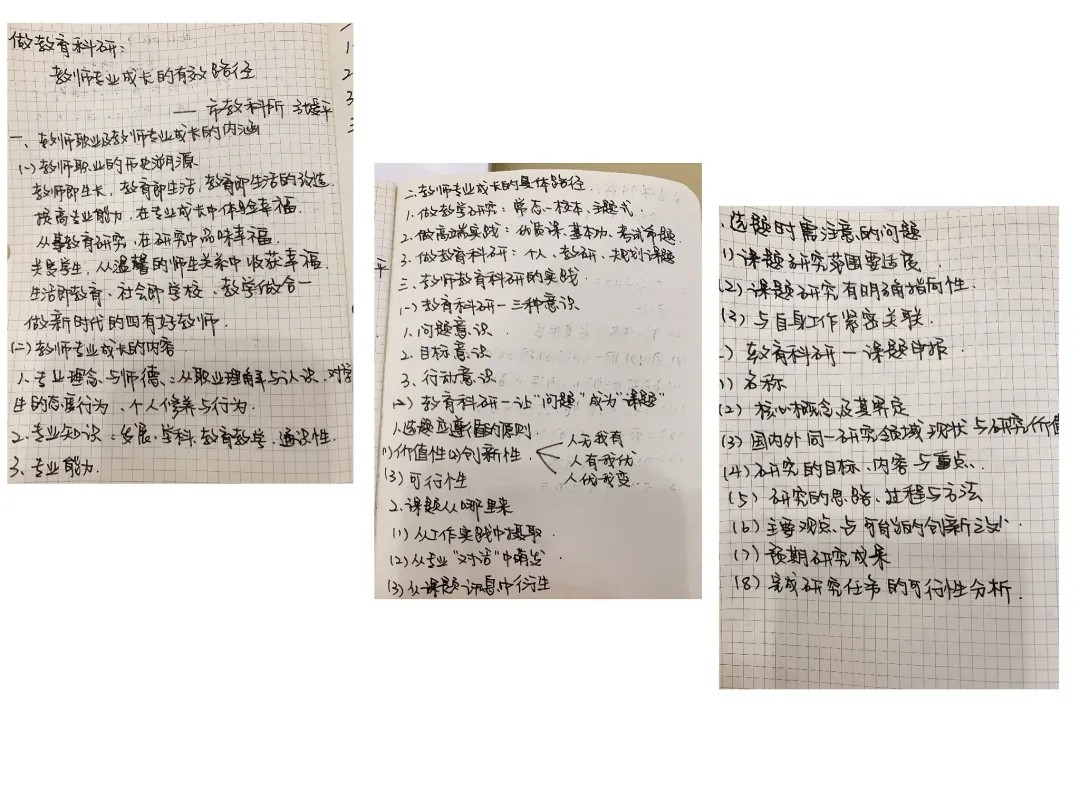 做教育科研:
教师专业成长的有效路径
——市教科所
一、教师职业及教师专业成长的内涵
(一)教师职业的历史溯源
教师即生长,教育即生活,教育即生活的改造.
提高专业能力,在专业成长中体验幸福.
从事教育研究,在研究中品味幸福.
关爱学生,从温馨的师生关系中收获幸福.
生活即教育、社会即学校、教学做合一
做新时代的四有好教师.
(二)教师专业成长的内容
1、专业理念与师德:从职业理解与认识、对学
生的态度行为、个人修养与行为.
2、专业知识:发展、学科、教育教学、通识性.
3、专业能力.
1
2
3
平
二、教师专业成长的具体路径
1、做教学研究:常态、校本、主题式.
2、做高端实践:优质课、基本功、考试命题.
3、做教育科研:个人、教研、规划课题
三、教师教育科研的实践
(一)教育科研—三种意识
1、问题意识.
2、目标意识
3、行动意识
(二)教育科研—让“问题”成为“课题”
1、选题应遵循的原则.
(1)价值性 (2)创新性
人无我有
人有我优
人优我变.
(3)可行性
2、课题从哪里来
(1)从工作实践中提取.
(2)从专业“对话”中萌发
(3)从课题讯息中衍生
、选题时需注意的问题
1)课题研究范围要适度.
(2)课题研究有明确指向性.
(3)与自身工作紧密关联.
)教育科研—课题申报.
1)名称
(2)核心概念及其界定
(3)国内外同一研究领域现状与研究价值
(4)研究的目标、内容与重点.
(5)研究的思路、过程与方法
(6)主要观点与可能的创新之处.
(7)预期研究成果
(8)完成研究任务的可行性分析.